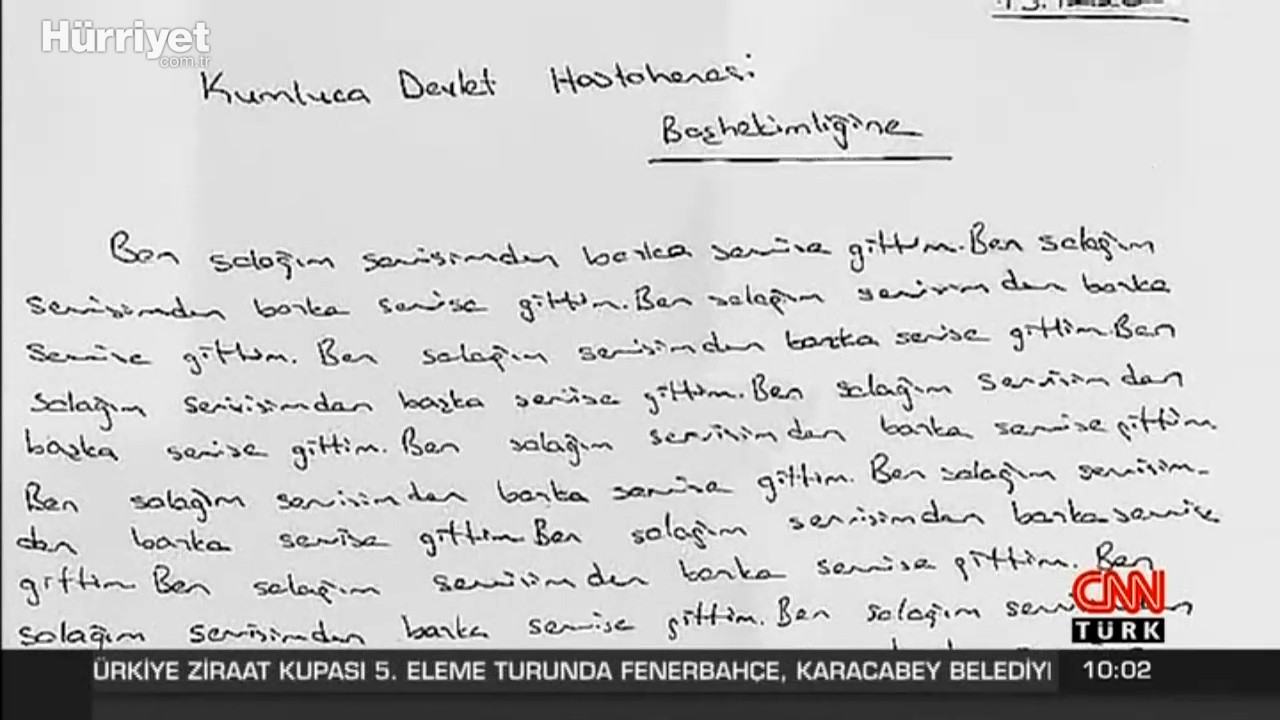 Hürriyet
.com.tr
Kumluca Devlet Hastahanesi
Başhekimliğine
Ben salağım servisimden başka servise gittim. Ben salağım
servisimden başka servise gittim. Ben salağım servisimden başka
servise gittim. Ben salağım servisimden başka servise gittim. Ben
salağım servisimden başka servise gittim. Ben salağım servisimden
başka servise gittim. Ben salağım servisimden başka servise gittim
Ben salağım servisimden başka servise gittim. Ben salağım servisim-
den başka servise gittim Ben salağım servisimden başka servise
gittim Ben salağım servisimden başka servise gittim. Ben
salağım servisimden başka servise gittim. Ben salağım servisimden
CNN
TÜRK
ÜRKİYE ZİRAAT KUPASI 5. ELEME TURUNDA FENERBAHÇE, KARACABEY BELEDİY
10:02